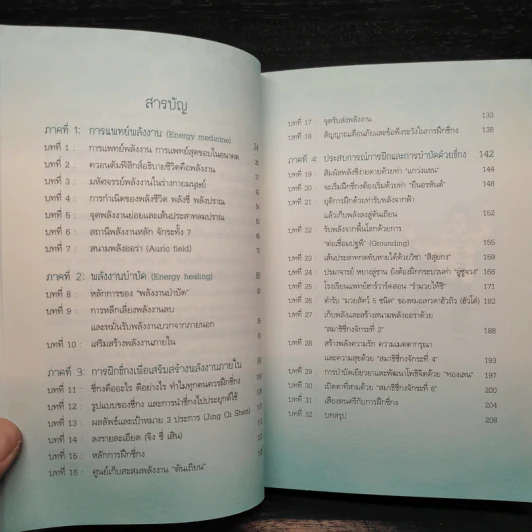 สารบัญ
ภาคที่ 1: การแพทย์พลังงาน (Energy medicine)
บทที่ 1 : การแพทย์พลังงาน การแพทย์สุดขอบในอนาคต
บทที่ 2 : ควอนตัมฟิสิกส์อธิบายชีวิตคือพลังงาน
บทที่ 3 : มหัศจรรย์พลังงานในร่างกายมนุษย์
บทที่ 4 : การกำเนิดของพลังชีวิต พลังชี่ พลังปราณ
บทที่ 5 : จุดพลังงานย่อยและเส้นประสาทลมปราณ
บทที่ 6 : สถานีพลังงานหลัก จักระทั้ง 7
บทที่ 7 : สนามพลังออร่า (Auric field)
ภาคที่ 2: พลังงานบำบัด (Energy healing)
บทที่ 8 : หลักการของ "พลังงานบำบัด"
บทที่ 9 : การหลีกเลี่ยงพลังงานลบ
และหมั่นรับพลังงานบวกจากภายนอก
บทที่ 10 : เสริมสร้างพลังงานภายใน
ภาคที่ 3: การฝึกชี่กงเพื่อเสริมสร้างพลังงานภายใน
บทที่ 11 : ชี่กงคืออะไร ดีอย่างไร ทำไมทุกคนควรฝึกชี่กง
บทที่ 12 : รูปแบบของชี่กง และการนำชี่กงไปประยุกต์ใช้
บทที่ 13 : ผลลัพธ์และเป้าหมาย 3 ประการ (Jing Qi Shen)
บทที่ 14 : ลงรายละเอียด (จิง ชี่ เสิน)
บทที่ 15 : หลักการฝึกชี่กง
บทที่ 16 : ศูนย์เก็บสะสมพลังงาน "ตันเถียน"
บทที่ 17 : จุดรับส่งพลังงาน 133
บทที่ 18 : สัญญาณเตือนภัยและข้อพึงระวังในการฝึกชี่กง 138
ภาคที่ 4: ประสบการณ์การฝึกและการบำบัดด้วยชี่กง 142
บทที่ 19 : สัมผัสพลังชี่ง่ายดายด้วยท่า "แกว่งแขน" 144
บทที่ 20 : จะเริ่มฝึกชี่กงต้องเริ่มด้วยท่า "ยืนอรหันต์" 148
บทที่ 21 : ยุติการฝึกด้วยท่ารับพลังจากฟ้า
แล้วเก็บพลังลงสู่ตันเถียน 152
บทที่ 22 : รับพลังจากพื้นโลกด้วยการ
"ต่อเชื่อมปฐพี" (Grounding) 155
บทที่ 23 : เส้นประสาทกดทับหายได้ด้วยวิชา "สี่สุ่ยกง" 159
บทที่ 24 : ปรมาจารย์ หยางลู่ซาน ยังต้องฝึกกระบวนท่า 167
บทที่ 25 : โรงเรียนแพทย์ฮาร์วาร์ดสอน "รำมวยไท้ชี่" 171
บทที่ 26 : ตำรับ "มวยสัตว์ 5 ชนิด" ของหมอเทวดาฮัวถัว (ฮัวโต๋) 182
บทที่ 27 : เก็บพลังและสร้างสนามพลังออร่าด้วย
"สมาธิชี่กงจักระที่ 2" 188
บทที่ 28 : สร้างพลังความรัก ความเมตตากรุณา
และความสุขด้วย "สมาธิชี่กงจักระที่ 4" 193
บทที่ 29 : การบำบัดเยียวยาและพัฒนาโพธิจิตด้วย "ทองเลน" 197
บทที่ 30 : เปิดตาที่สามด้วย "สมาธิชี่กงจักระที่ 6" 200
บทที่ 31 : เสียงดนตรีกับการฝึกชี่กง 204
บทที่ 32 : บทสรุป 208